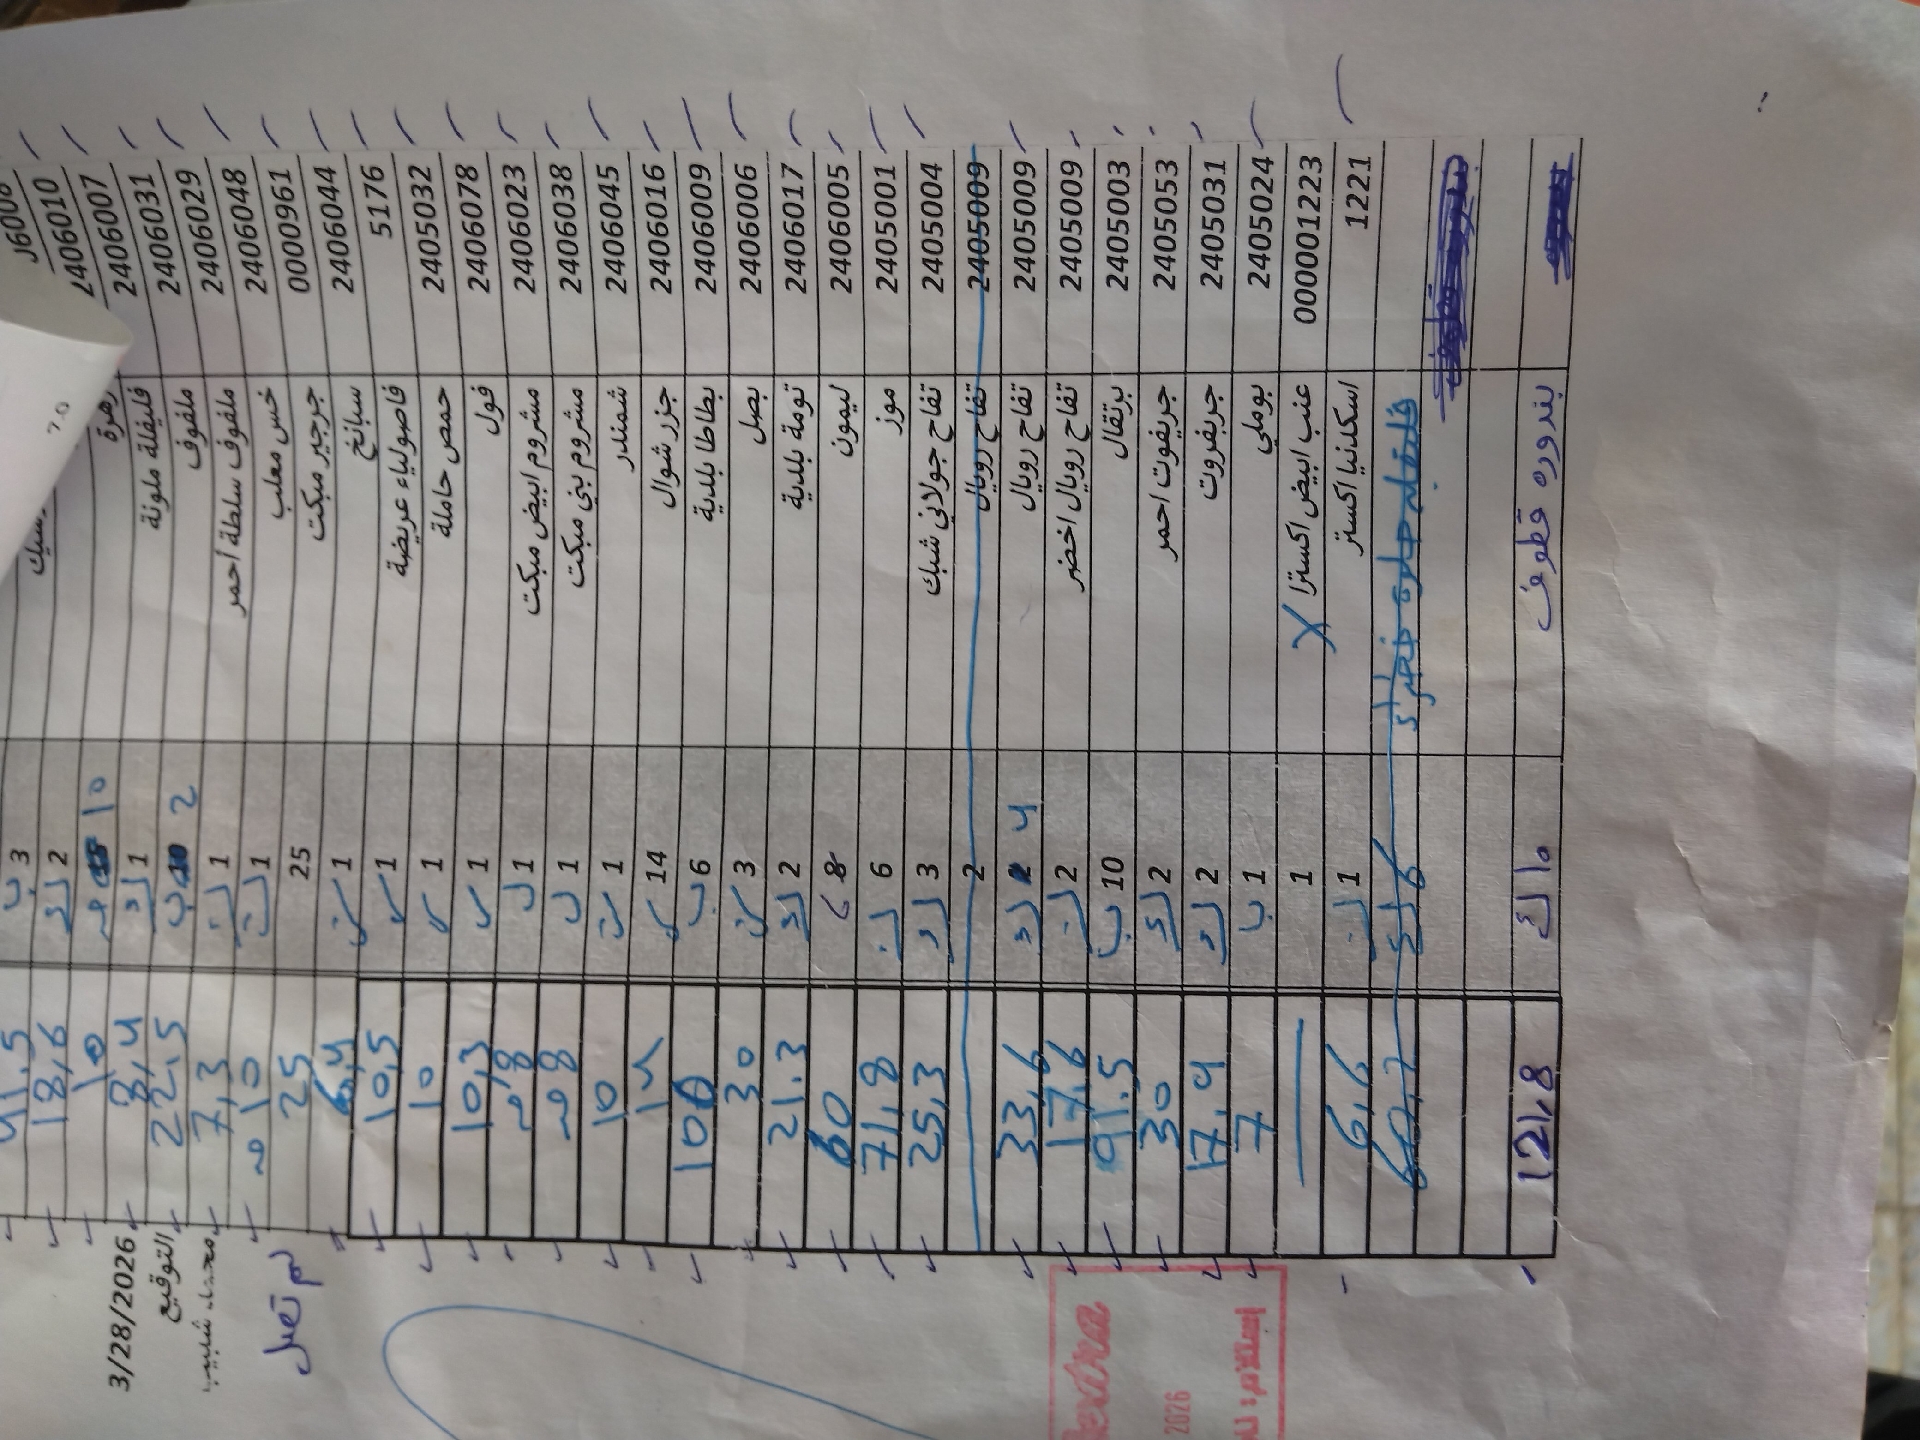 3 ب 41,5
2406010 2 لد 18,6
2406007 زهرة 10 10
2406031 فليفلة ملونة 1 لد 8,4
2406029 ملفوف 2 22,5
2406048 ملفوف سلطة أحمر 1 7,3
00000961 خس معلب 1 10
2406044 جرجير مبكت 25 25
5176 سبانخ 1 6,4
2405032 فاصولياء عريضة 1 10,5
2406078 حمص حاملة 1 10
2406023 فول 1 10,3
2406038 مشروم ابيض مبكت 1 8
2406045 مشروم بني مبكت 1 8
2406016 شمندر 1 10
2406009 جزر شوال 14 14
2406006 بطاطا بلدية 6 ب 100
2406017 بصل 3 30
2406005 تومة بلدية 2 لد 21.3
2405001 ليمون 8 60
2405004 موز 6 71,8
2405009 تفاح جولاني شبك 3 لد 25,3
2405009 تفاح رويال 2
2405009 تفاح رويال 4 لد 33,6
2405003 تفاح رويال اخضر 2 17,6
2405053 برتقال 10 ب 91.5
2405031 جريفوت احمر 2 لد 30
2405024 جريفروت 2 لد 17.4
000001223 بوملي 1 ب 7
1221 عنب ابيض اكسترا X 1
اسكدنيا اكستر 1 6,6
فليفله حلوه خضراء 6 لد
بندوره قطوف 10 لد 121,8
3/28/2026
التوقيع
محمد شبيب
تم تعديل
extra
2026